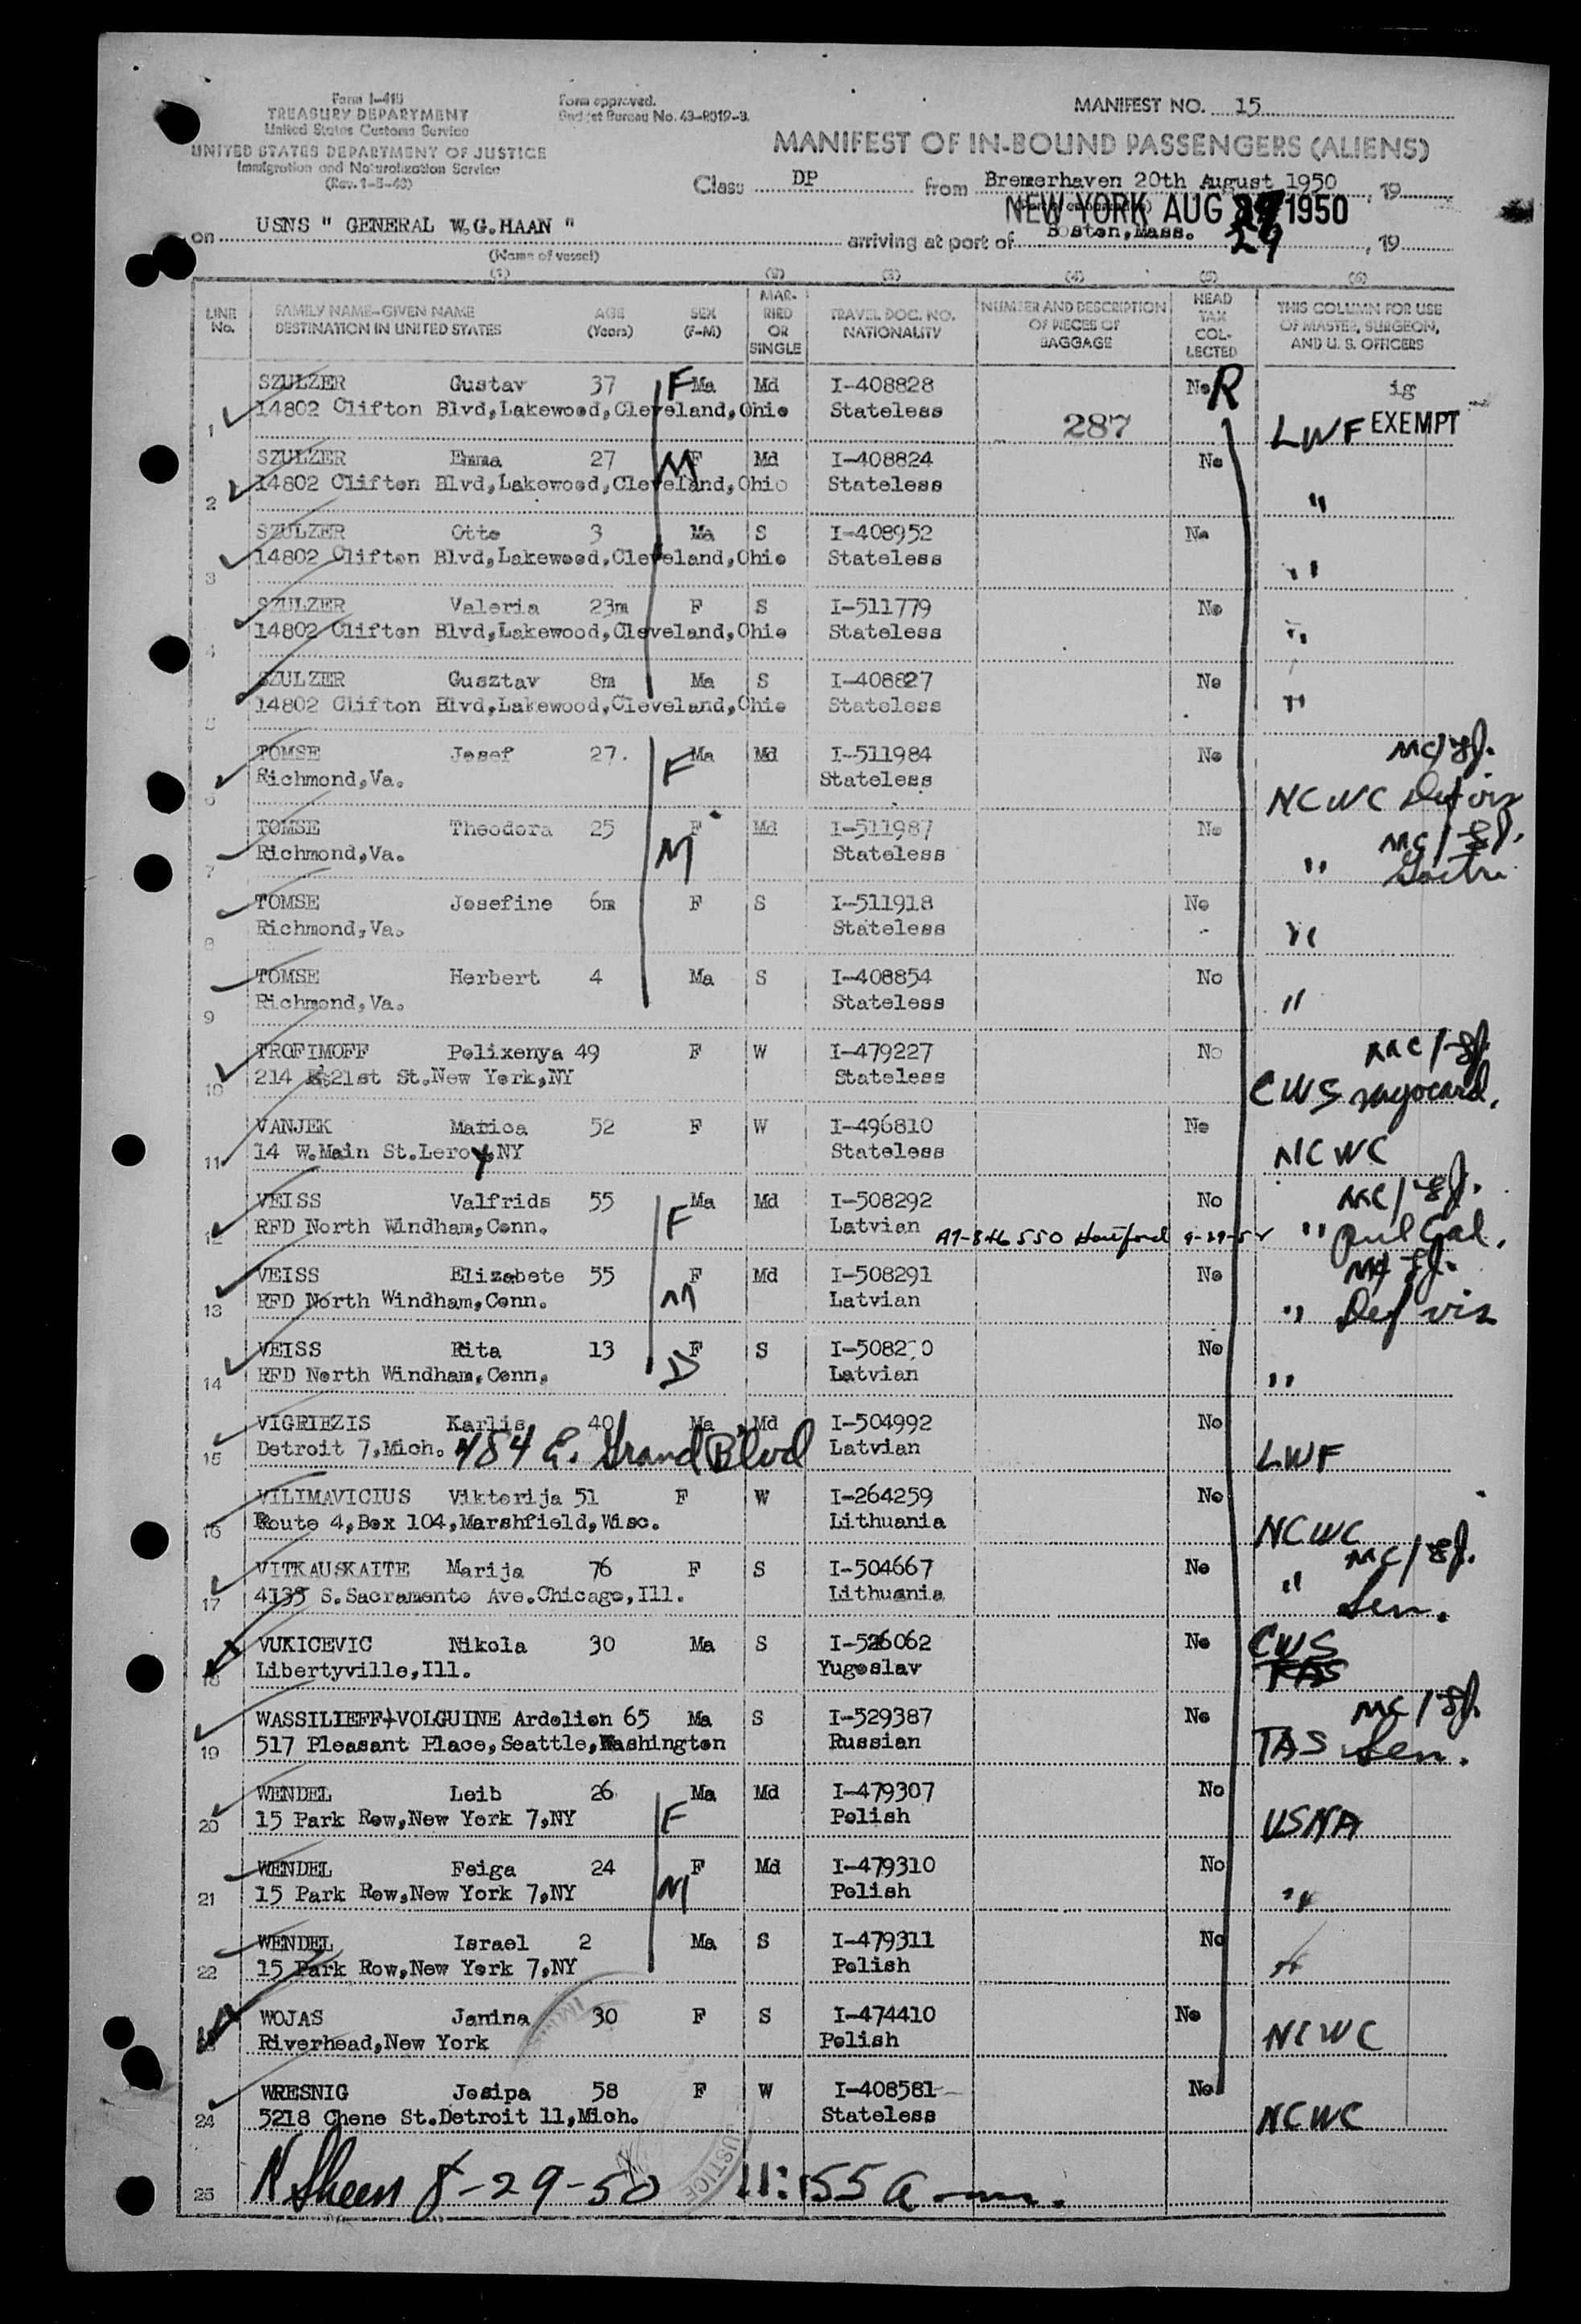 Form I-418
TREASURY DEPARTMENT
United States Customs Service
UNITED STATES DEPARTMENT OF JUSTICE
Immigration and Naturalization Service
Form approved.
Budget Bureau No. 43-R019-3.
MANIFEST NO. 15
MANIFEST OF IN-BOUND PASSENGERS (ALIENS)
Class DP from Bremerhaven 20th August 1950, 19
NEW YORK AUG 29 1950
on USNS " GENERAL W.G.HAAN " arriving at port of Boston,Mass. 29, 19
(Name of vessel)
(1) (2) (3) (4) (5) (6)
LINE No. FAMILY NAME-GIVEN NAME DESTINATION IN UNITED STATES AGE (Years) SEX (F-M) MARRIED OR SINGLE TRAVEL DOC. NO. NATIONALITY NUMBER AND DESCRIPTION OF PIECES OF BAGGAGE HEAD TAX COLLECTED THIS COLUMN FOR USE OF MASTER, SURGEON, AND U. S. OFFICERS
SZULZER Gustav 37 F Ma Md I-408828 No R ig
1 14802 Clifton Blvd,Lakewood,Cleveland,Ohio Stateless 287 LWF EXEMPT
SZULZER Emma 27 M F Md I-408824 No
2 14802 Clifton Blvd,Lakewood,Cleveland,Ohio Stateless "
SZULZER Otto 3 Ma S I-408952 No
3 14802 Clifton Blvd,Lakewood,Cleveland,Ohio Stateless "
SZULZER Valeria 23m F S I-511779 No
4 14802 Clifton Blvd,Lakewood,Cleveland,Ohio Stateless "
SZULZER Gusztav 8m Ma S I-408827 No
5 14802 Clifton Blvd,Lakewood,Cleveland,Ohio Stateless "
TOMSE Josef 27. F Ma Md I-511984 No
6 Richmond,Va. Stateless NCWC Def vis
TOMSE Theodora 25 F Md I-511987 No
7 Richmond,Va. M Stateless "
TOMSE Josefine 6m F S I-511918 No
8 Richmond,Va. Stateless "
TOMSE Herbert 4 Ma S I-408854 No
9 Richmond,Va. Stateless "
TROFIMOFF Polixenya 49 F W I-479227 No
10 214 E.21st St.New York,NY Stateless CWS
VANJEK Marica 52 F W I-496810 No
11 14 W.Main St.Leroy,NY Stateless NCWC
VEISS Valfrids 55 F Ma Md I-508292 No
12 RFD North Windham,Conn. Latvian A7-846550 Hartford 9-29-5 "
VEISS Elizabete 55 F Md I-508291 No
13 RFD North Windham,Conn. M Latvian " Def vis
VEISS Rita 13 F S No
14 RFD North Windham,Conn. D Latvian "
VIGRIEZIS Karlis 40 Ma Md I-504992 No
15 Detroit 7,Mich. 484 E. Grand Blvd Latvian LWF
VILIMAVICIUS Viktorija 51 F W I-264259 No
16 Route 4,Box 104,Marshfield,Wisc. Lithuania NCWC
VITKAUSKAITE Marija 76 F S I-504667 No
17 4135 S.Sacramento Ave.Chicago,Ill. Lithuania " Sen.
VUKICEVIC Nikola 30 Ma S I-526062 No CWS
18 Libertyville,Ill. Yugoslav TAS
WASSILIEFF+VOLGUINE Ardelion 65 Ma S I-529387 No
19 517 Pleasant Place,Seattle,Washington Russian TAS Sen.
WENDEL Leib 26 Ma Md I-479307 No
20 15 Park Row,New York 7,NY F Polish USNA
WENDEL Feiga 24 F Md I-479310 No
21 15 Park Row,New York 7,NY M Polish "
WENDEL Israel 2 Ma S I-479311 No
22 15 Park Row,New York 7,NY Polish "
WOJAS Janina 30 F S I-474410 No
23 Riverhead,New York Polish NCWC
WRESNIG Josipa 58 F W I-408581 No
24 5218 Chene St.Detroit 11,Mich. Stateless NCWC
25 N Sheen 8-29-50 11:55 a m.